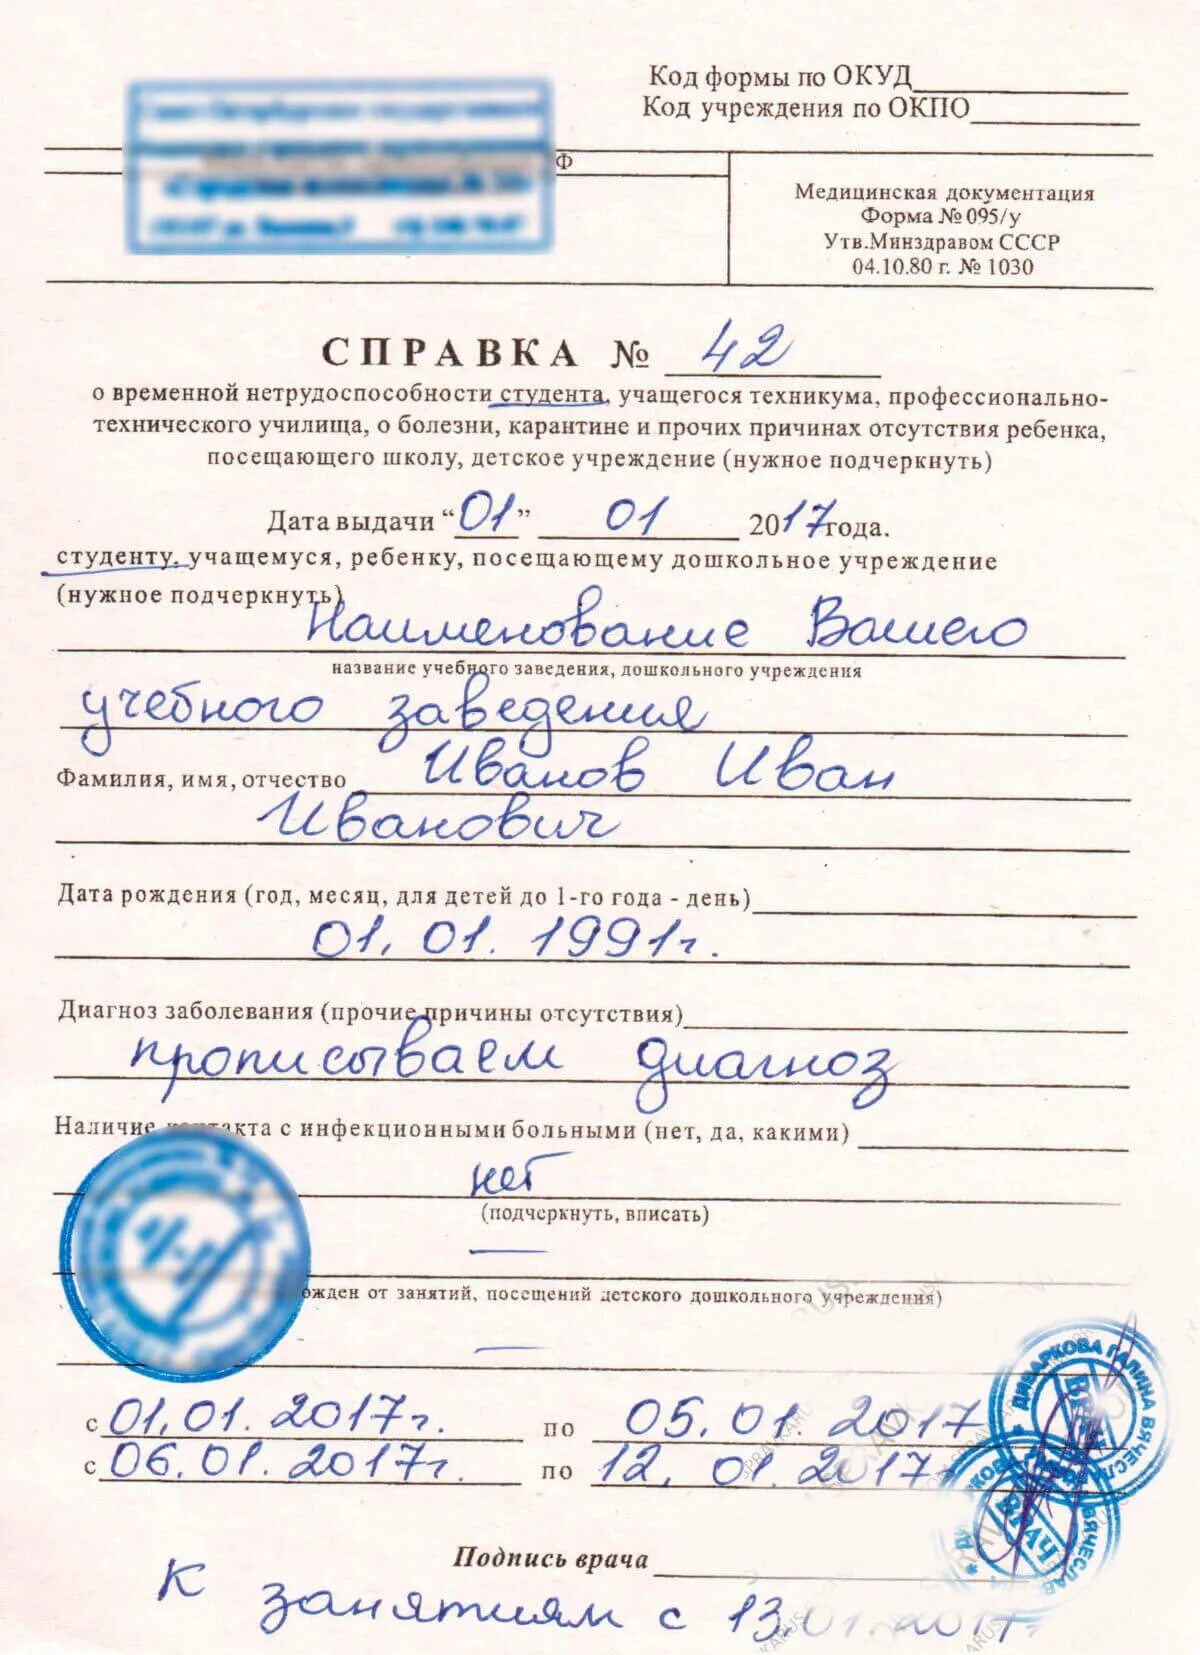 Код формы по ОКУД
Код учреждения по ОКПО
Ф
Медицинская документация
Форма № 095/у
Утв.Минздравом СССР
04.10.80 г. № 1030
СПРАВКА № 42
о временной нетрудоспособности студента, учащегося техникума, профессионально-
технического училища, о болезни, карантине и прочих причинах отсутствия ребенка,
посещающего школу, детское учреждение (нужное подчеркнуть)
Дата выдачи “01” 01 2017 года.
студенту, учащемуся, ребенку, посещающему дошкольное учреждение
(нужное подчеркнуть)
Наименование Вашего
название учебного заведения, дошкольного учреждения
учебного заведения
Фамилия, имя, отчество Иванов Иван
Иванович
Дата рождения (год, месяц, для детей до 1-го года - день)
01. 01. 1991г.
Диагноз заболевания (прочие причины отсутствия)
прописываем диагноз
Наличие контакта с инфекционными больными (нет, да, какими)
нет
(подчеркнуть, вписать)
—
ожден от занятий, посещений детского дошкольного учреждения)
—
с 01.01.2017г. по 05.01.2017
с 06.01.2017г. по 12.01.2017г
ДИВАРКОВА ГАЛИНА ВЯЧЕСЛАВ
ВРАЧ
ВРАЧ
Подпись врача
К занятиям с 13.01.2017г